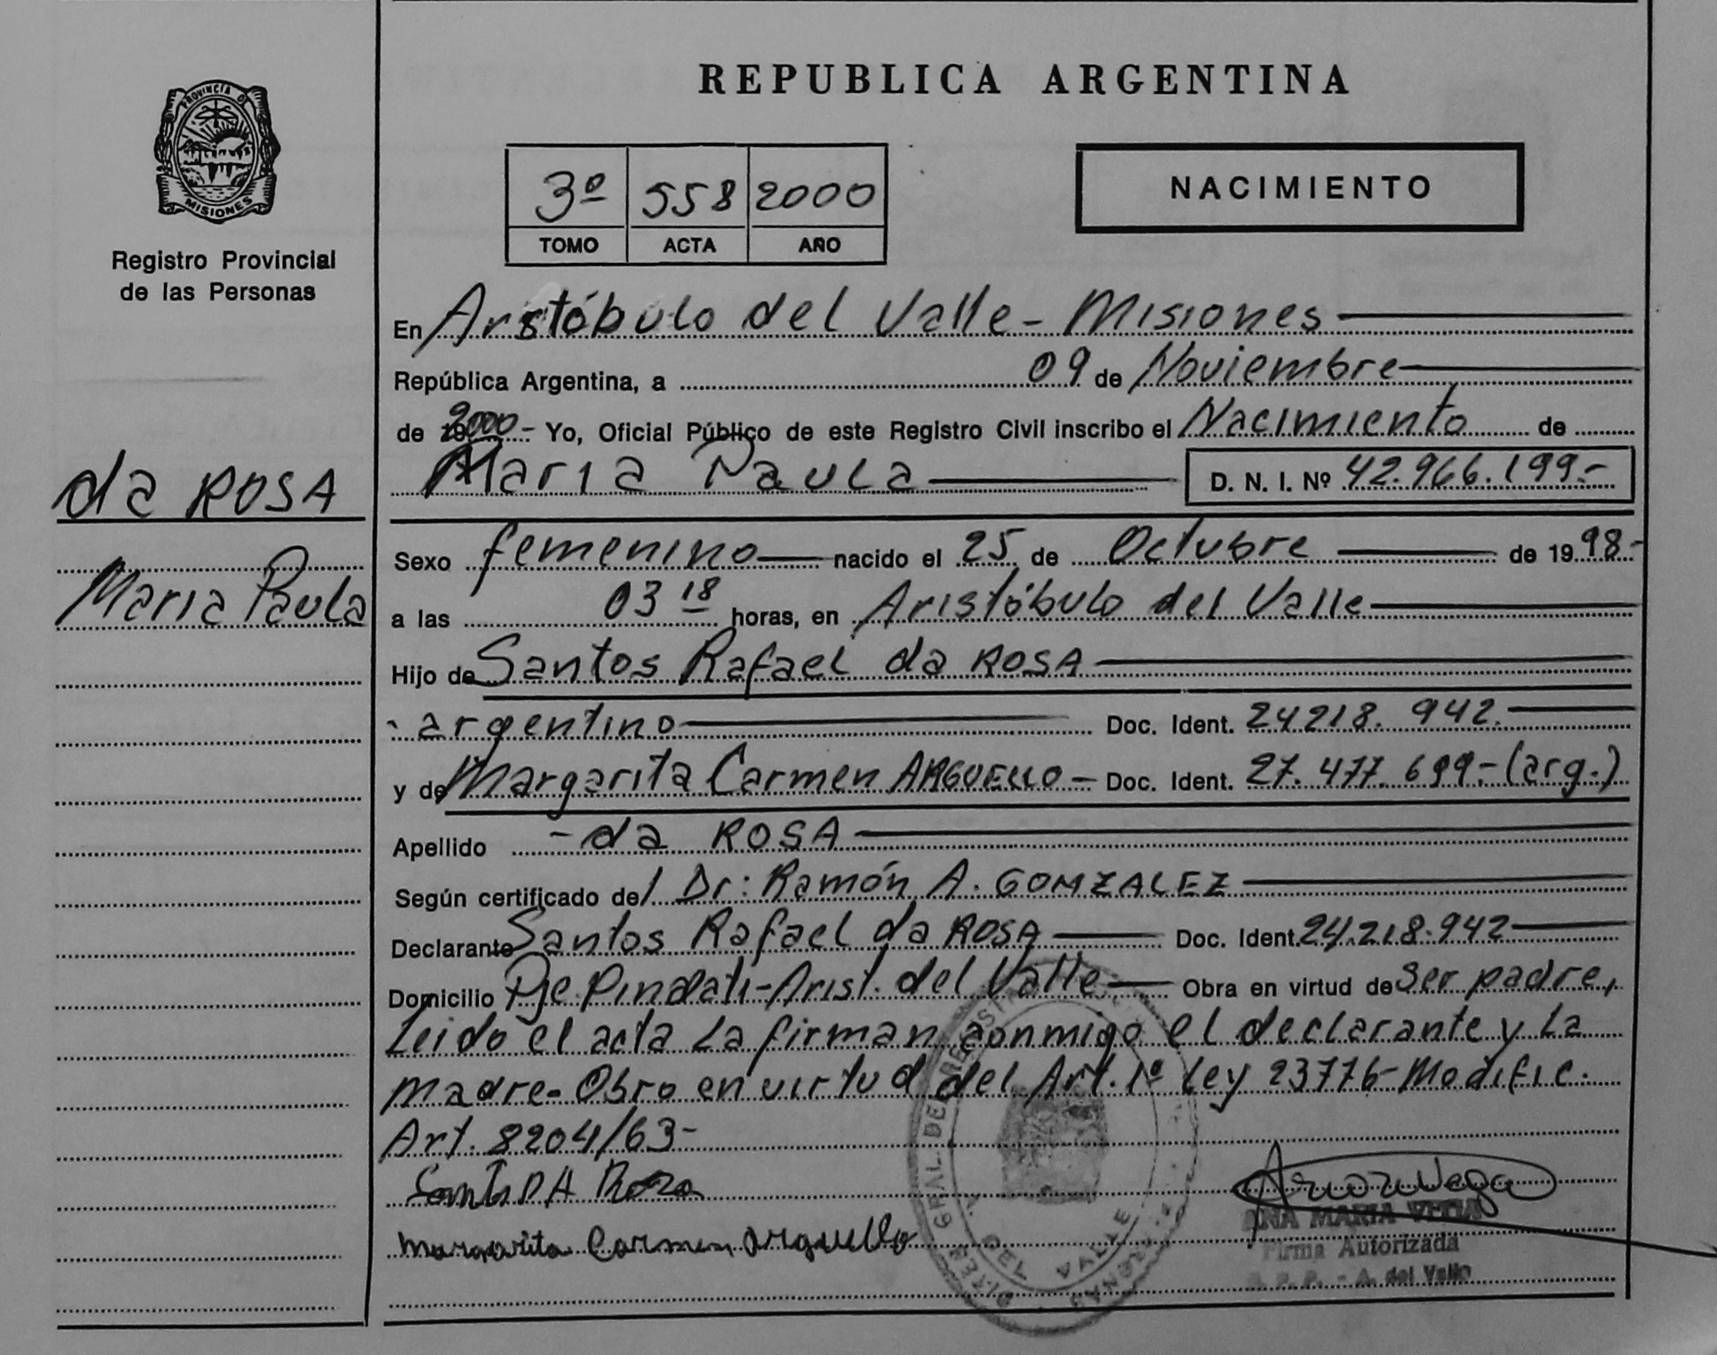 PROVINCIA DE
MISIONES
Registro Provincial
de las Personas
da ROSA
Maria Paula
REPUBLICA ARGENTINA
3º 558 2000
TOMO ACTA AÑO
NACIMIENTO
En Aristóbulo del Valle - Misiones
República Argentina, a 09 de Noviembre
de 2000- Yo, Oficial Público de este Registro Civil inscribo el Nacimiento de
Maria Paula D. N. I. Nº 42.966.199.-
Sexo femenino nacido el 25 de Octubre de 1998-
a las 03 18 horas, en Aristóbulo del Valle
Hijo de Santos Rafael da ROSA
- argentino Doc. Ident. 24218.942.
y de Margarita Carmen ARGUELLO - Doc. Ident. 27.477.699.- (arg.)
Apellido - da ROSA
Según certificado de/ Dr: Ramón A. GOMZALEZ
Declarante Santos Rafael da ROSA Doc. Ident. 24.218.942
Domicilio Pje Pindati - Arist. del Valle Obra en virtud de ser padre,
Leido el acta La firman conmigo el declarante y La
madre- Obro en virtud del Art. 1º Ley 23776- Modific.
Art. 8204/63-
Santos DA Roza
Margarita Carmen Arguello
ANA MARIA VEGA
Firma Autorizada
R. P. P. - A. del Valle